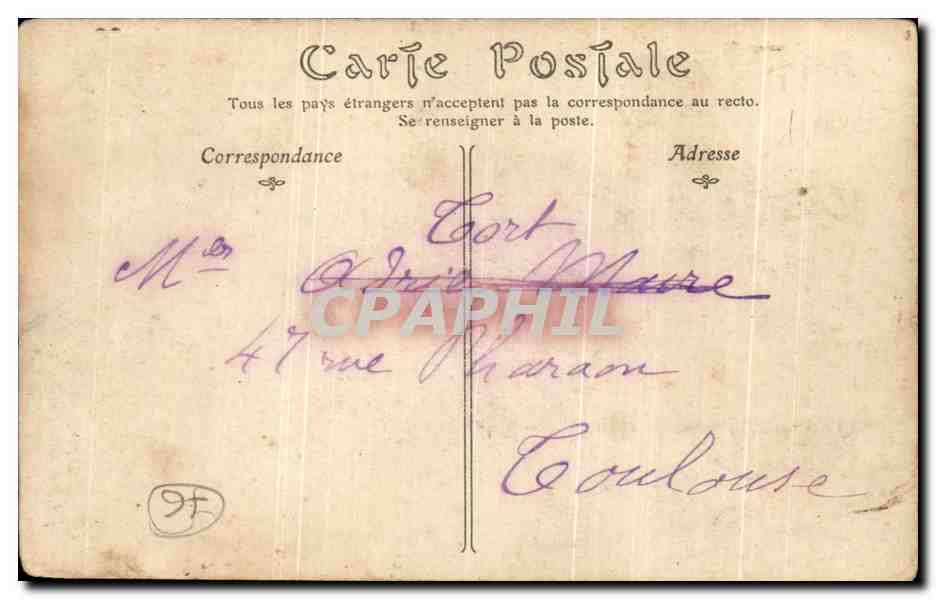 Carte Postale
Tous les pays étrangers n'acceptent pas la correspondance au recto.
Se renseigner à la poste.
Correspondance
Adresse
Tort
Mer Adrie Maure
CPAPHIL
47 rue Pharaon
Toulouse